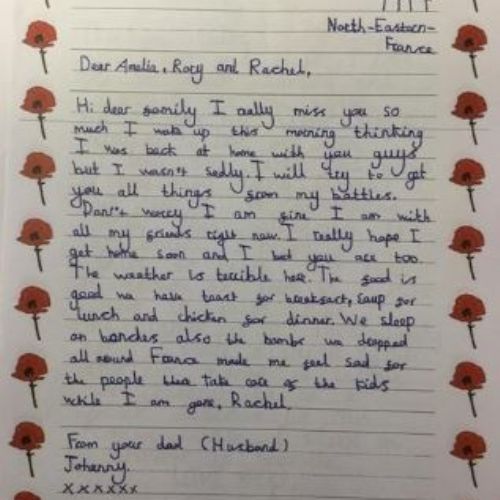 North-Eastern-
France
Dear Amelia, Rory and Rachel,
Hi dear family I really miss you so
much I wake up this morning thinking
I was back at home with you guys
but I wasn't sadly. I will try to get
you all things from my battles.
Don't worry I am fine I am with
all my friends right now. I really hope I
get home soon and I bet you are too.
The weather is terrible here. The food is
good we have toast for breakfast, soup for
lunch and chicken for dinner. We sleep
on benches also the bombs we dropped
all around France made me feel sad for
the people take care of the kids
while I am gone, Rachel.
From your dad (Husband)
Johenny.
xxxxxx